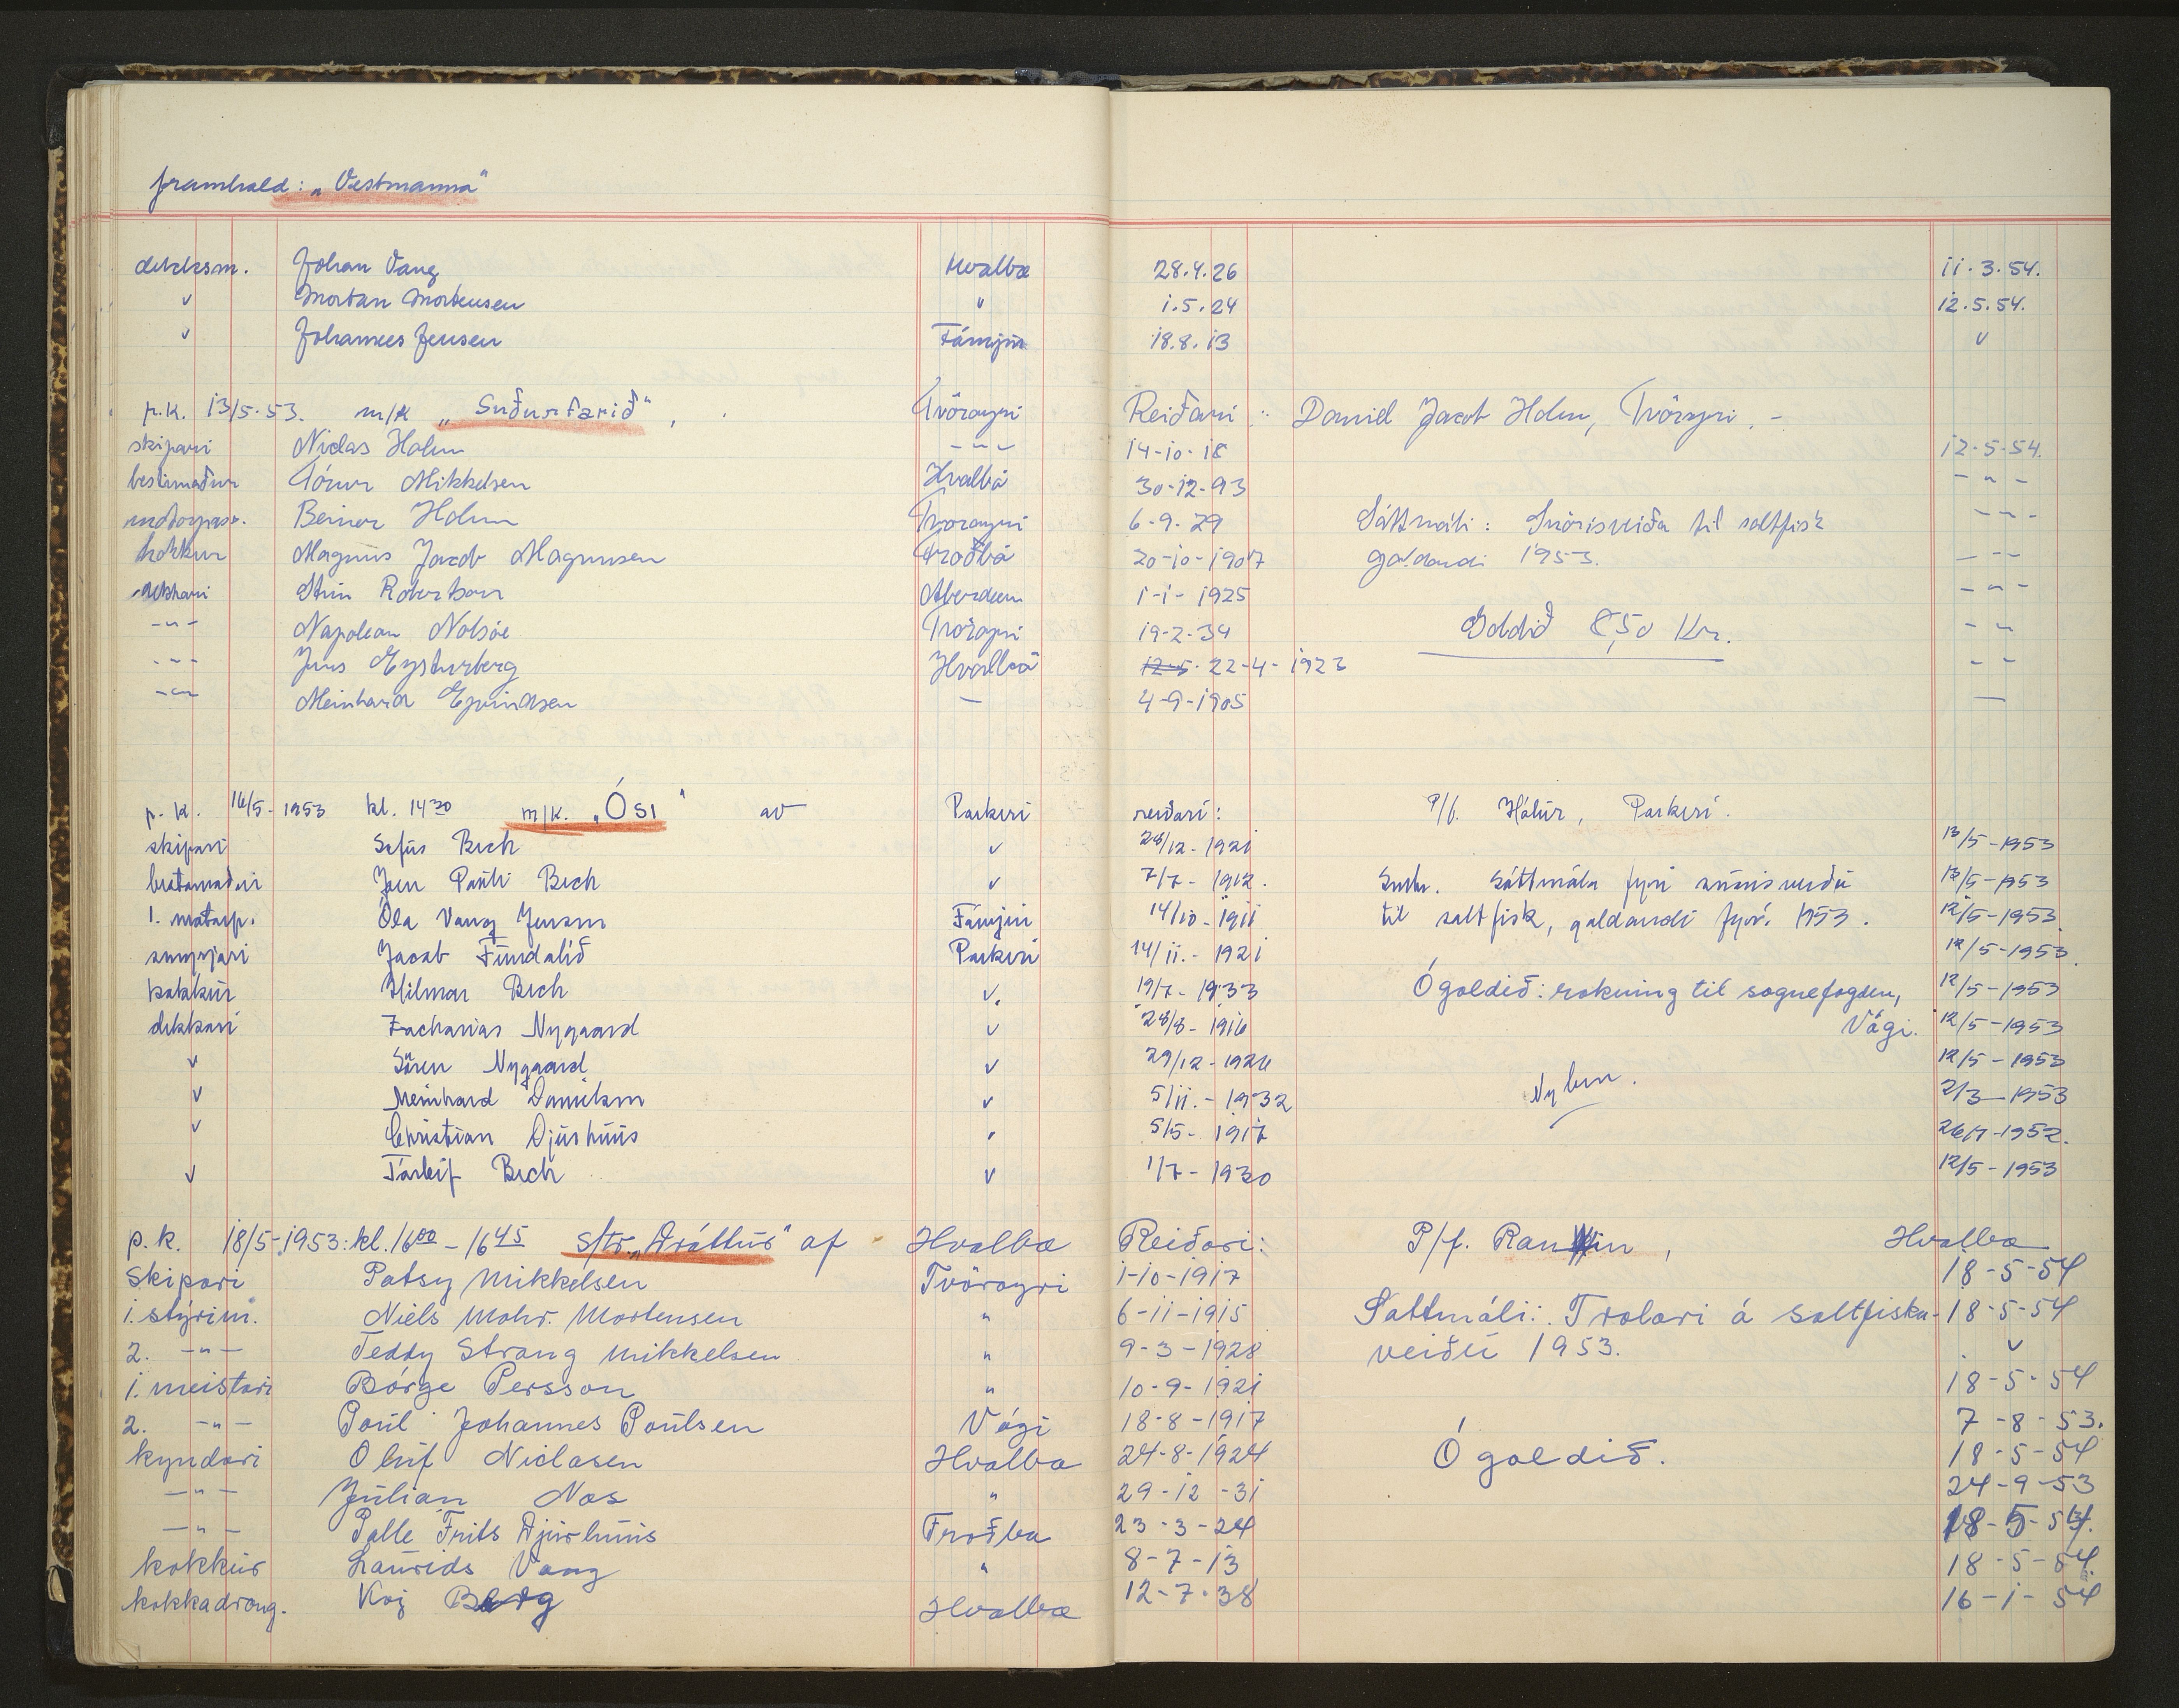 framhald: „Vestmanna"
dekksm. Johan Vang Hvalba 28.4.26 11.3.54.
v Mortan Mortensen " 1.5.24 12.5.54.
v Johannes Jensen Fámjin 18.8.13 v
p.k. 13/5-53. m/k „Suðurfarið", Tvöroyri Reiðari: Daniel Jacob Holm, Tvöroyri. -
skipari Niclas Holm -"- 14-10-18 12-5-54.
bestimaður Tórur Mikkelsen Hvalba 30-12-93 -"-
motorpass. Beinor Holm Tvöroyri 6-9-29 Sáttmáli: Snörisveiða til saltfisk -"-
kokkur Magnus Jacob Magnusen Froðba 20-10-1907 galdandi 1953. -"-
dekkari Robertson Aberdeen 1-1-1925 -"-
-"- Napolean Nolsöe Tvöroyri 19-2-34 Goldið 8,50 Kr. -"-
-"- Jens Eysturberg Hvalba 12-5. 22-4-1923 -"-
-"- Meinhard Ejvindsen — 4-9-1905 —
p.k. 16/5-1953 kl. 14 30 m/k. „Ósi" av Parkeri reiðari: P/f. Hólur, Parkeri.
skipari Sofus Bech v 28/12-1921 13/5-1953
bestamaður Jens Pauli Bech v 7/7-1912. Smbr. sáttmála fyri snörisveiðu 13/5-1953
1. motorp. Óla Vang Jensen Fámjin 14/10-1911 til saltfisk, galdandi fyri 1953. 12/5-1953.
smyrjari Jacob Fundalið Parkeri 14/11.-1921 12/5-1953.
kokkur Hilmar Bech v. 19/7-1933 Ógoldið: rokning til sognefogden, 12/5-1953
dekkari Zacharias Nygaard v 28/8-1916 Vági. 12/5-1953
v Sören Nygaard v 29/12-1926 12/5-1953
v Meinhard Danielsen v 5/11.-1932 Nybm. 2/3-1953
v Christian Djurhuus v 5/5-1917 26/7-1952.
v Torleif Bech v 1/7-1930 12/5-1953
p.k. 18/5-1953: kl. 16 00 - 16 45 s/tr. „Dráttur" af Hvalba Reiðari: P/f. Rankin, Hvalba
Skipari Patsy Mikkelsen Tvöroyri 1-10-1917 18-5-54
1. stýrim. Niels Mohr. Mortensen " 6-11-1915 Sattmáli: Trolari á saltfiska- 18-5-54
2. -"- Teddy Strang Mikkelsen " 9-3-1928 veiðu 1953. v
1. meistari Börge Persson " 10-9-1921 18-5-54
2. -"- Poul Johannes Poulsen Vági 18-8-1917 7-8-53.
kyndari Oluf Niclasen Hvalba 24-8-1924 Ógoldið. 18-5-54
-"- Julian Nos " 29-12-31 24-9-53
-"- Palle Frits Djurhuus Froðba 23-3-24 18-5-54.
kokkur Laurids Vang " 8-7-13 18-5-54.
kokkadrong. Kaj Berg Hvalba 12-7-38 16-1-54